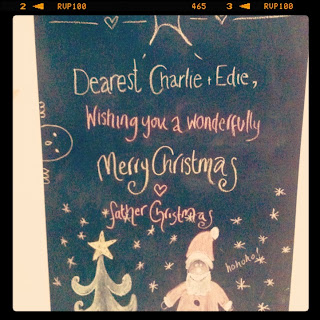 2 RVP100 465 3 RVP100
Dearest Charlie + Edie,
Wishing you a wonderfully
Merry Christmas
father Christmas
hohoho!